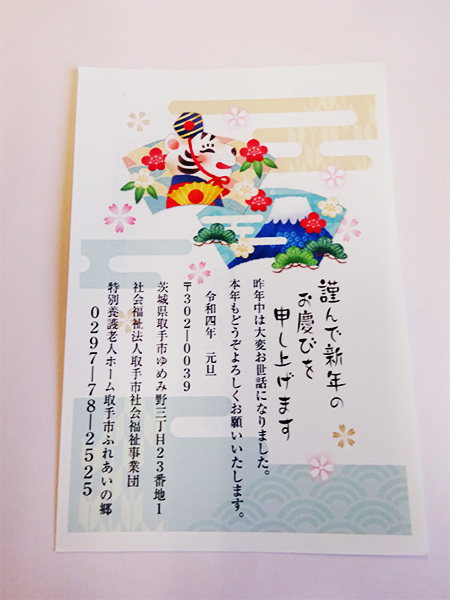 謹んで新年の
お慶びを
申し上げます
昨年中は大変お世話になりました。
本年もどうぞよろしくお願いいたします。
令和四年 元旦
〒302-0039
茨城県取手市ゆめみ野三丁目23番地1
社会福祉法人取手市社会福祉事業団
特別養護老人ホーム取手市ふれあいの郷
0297-78-2525